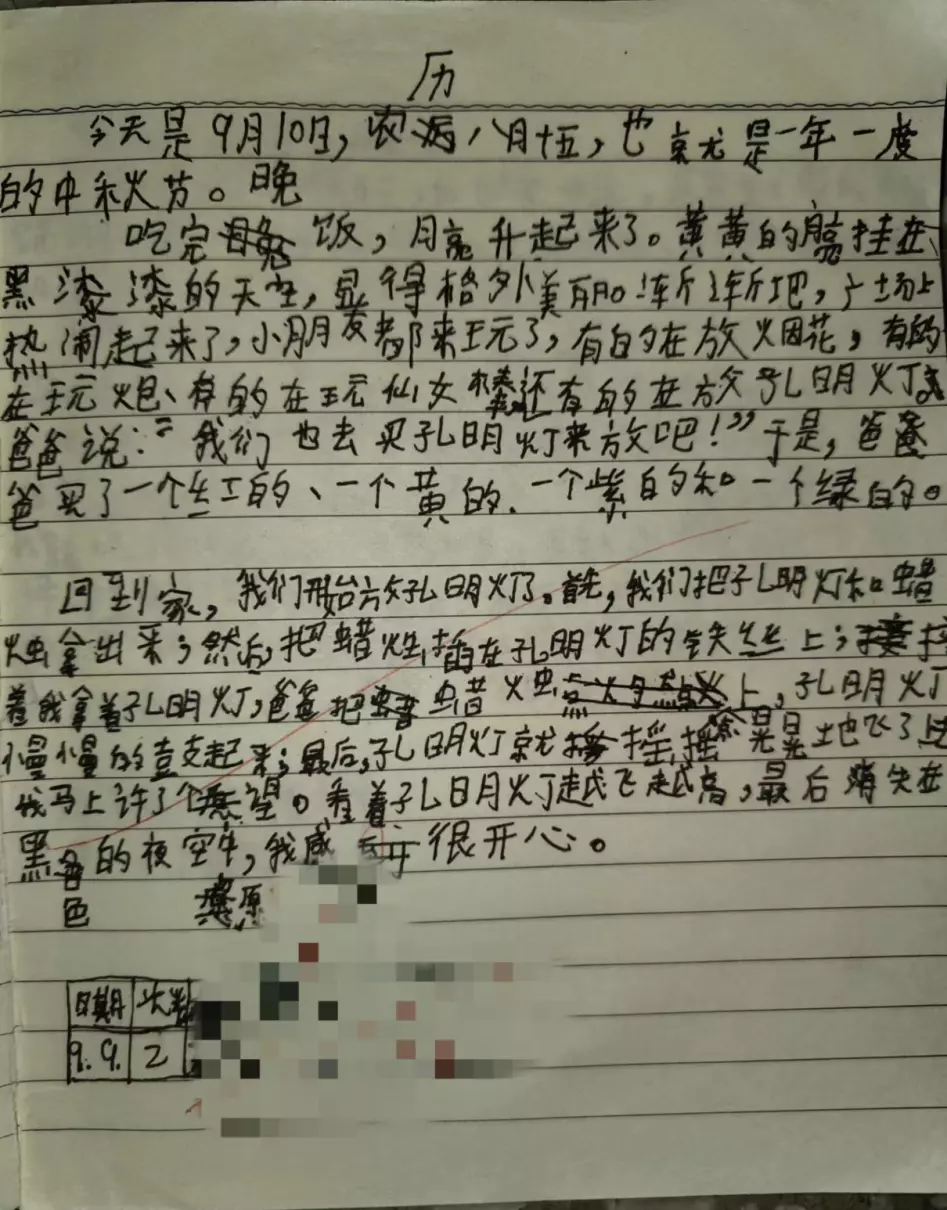 历
今天是9月10日，农历八月十五，也就是一年一度
的中秋节。晚
吃完晚饭，月亮升起来了。黄黄的月亮挂在
黑漆漆的天空，显得格外美丽。渐渐地，广场上
热闹起来了，小朋友都来玩了，有的在放烟花，有的
在玩炮、有的在玩仙女棒还有的在放孔明灯
爸爸说："我们也去买孔明灯来放吧！"于是，爸
爸买了一个红的、一个黄的、一个紫的和一个绿的。
回到家，我们开始放孔明灯了。首先，我们把孔明灯和蜡
烛拿出来；然后，把蜡烛插在孔明灯的铁丝上；接
着我拿着孔明灯，爸爸把蜡烛上，孔明灯
慢慢的支起来；最后，孔明灯就摇摇晃晃地飞了
我马上许了个愿望。看着孔明灯越飞越高，最后消失在
黑色的夜空中，我感 很开心。
色 原
日期 次数
9.9. 2